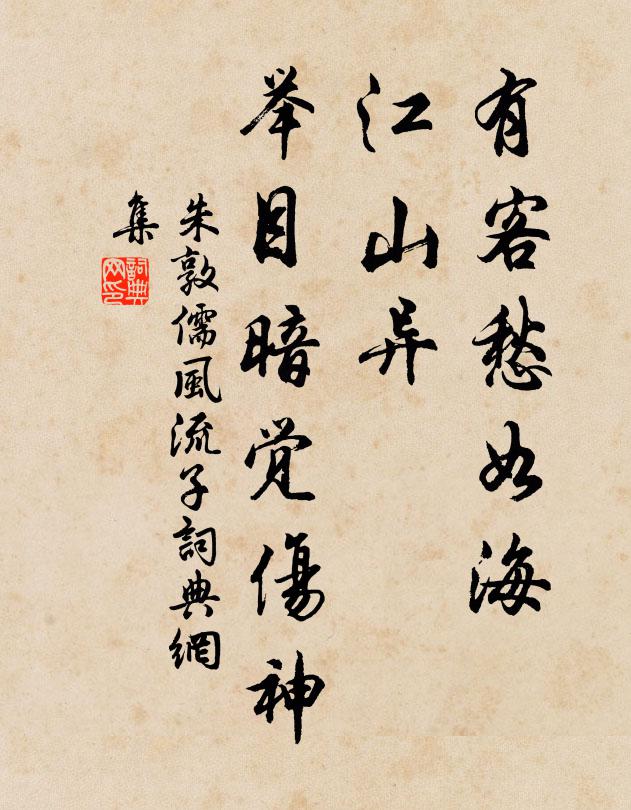 有客愁如海
江山异
举目暗觉傷神
朱敦儒風流子詞典網
集
詞典
网印